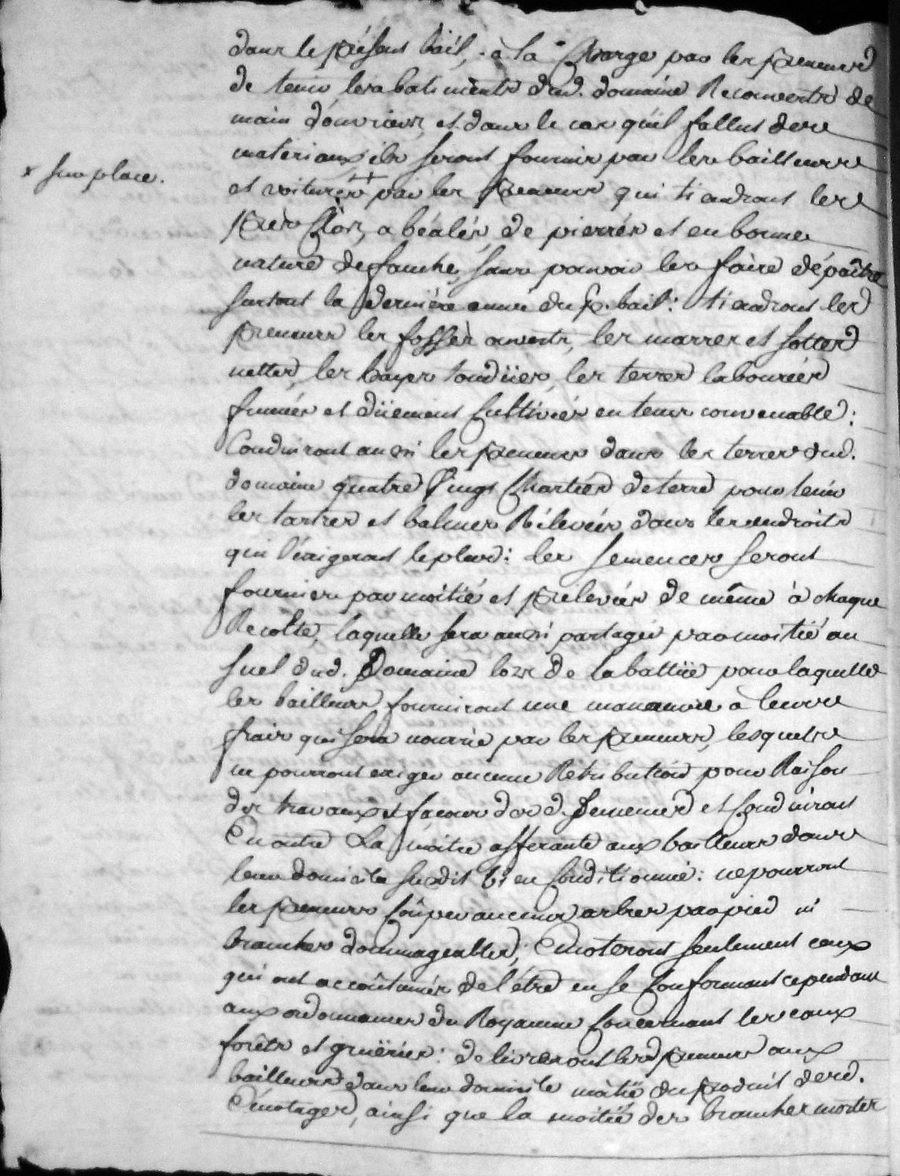 dans le présent bail, à la Charge par les preneurs
de tenir les batiments dud. domaine Recouverts de
main d'ouvriers, et dans le cas qu'il fallut des
materiaux ils seront fournis par les bailleurs
* sur place.
et voiturés ++ par les preneurs qui tiendront les
près Clos, abéalés de pierres et en bonne
nature de fauche, sans pouvoir les faire dépaître
surtout la derniere année du p. bail: tiendront les
preneurs les fossès ouverts, les marres et
nettes, les hayes tondües, les terres labourées
fumées et düement Cultivées en tems convenable:
Conduiront aussi les preneurs dans les terres dud.
domaine quatre Vingt Chartiers de terre pour tenir
les tartres et Rélevées dans les endroits
qui l'éxigeront le plus: les semences seront
fournies par moitié et prélevées de même à chaque
Récolte, laquelle sera aussi partagée par moitié au
suel dud. Domaine lors de la battüe pour laquelle
les bailleurs fourniront une manœuvre à leurs
frais qui sera nourrie par les preneurs, lesquels
ne pourront exiger aucune Rétribution pour Raison
des travaux et façons desd. Semences et Conduiront
En outre La moitié afférante aux bailleurs dans
leur domicile susdit bien Conditionnée: ne pourront
les preneurs Coûper aucuns arbres par pied ni
branches dommageables; Emoteront seulement ceux
qui ont accoûtumés de l'être en se Conformant cependant
aux ordonnances du Royaume Concernant les eaux
forêts et grueries: délivreront les preneurs aux
bailleurs dans leur domicile moitié du produit desd.
Emotages, ainsi que la moitié des branches mortes